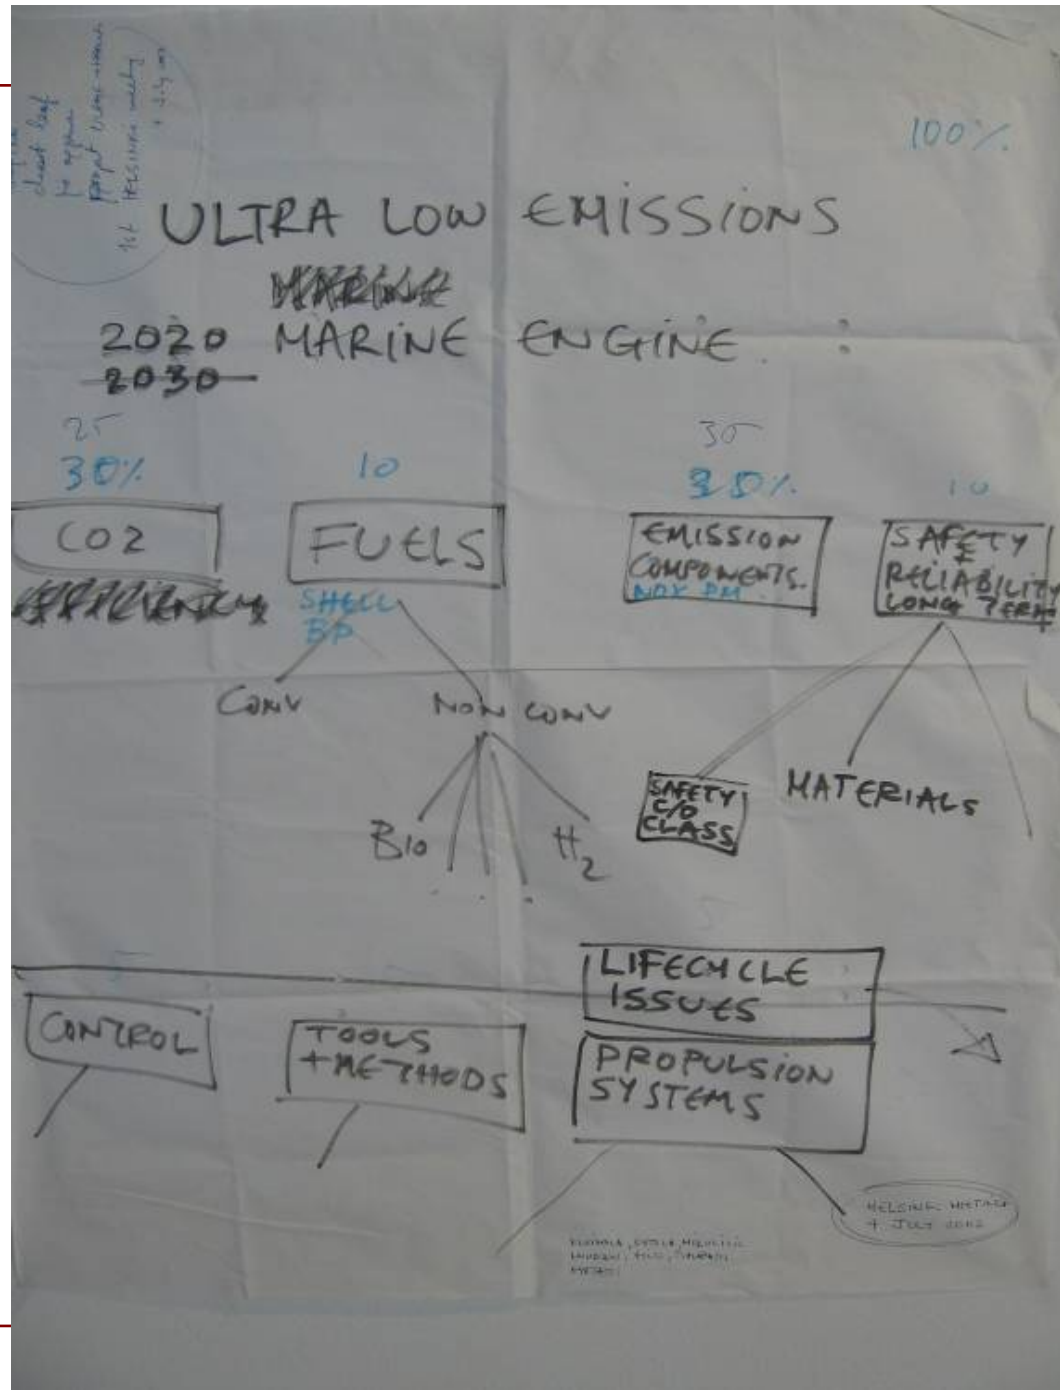 chart leaf
1st HELSINKI meeting
100%
ULTRA LOW EMISSIONS
MARINE
2020 MARINE ENGINE :
2030
25
30%
10
35
10
CO2
FUELS
EMISSION
COMPONENTS.
NOX PM
SAFETY
RELIABILITY
LONG TERM
EFFICIENCY
SHELL
BP
CONV
NON CONV
BIO
H2
SAFETY
C/O
CLASS
MATERIALS
5
LIFECYCLE
ISSUES
CONTROL
TOOLS
+METHODS
PROPULSION
SYSTEMS
HELSINKI MEETING
4 JULY 2002